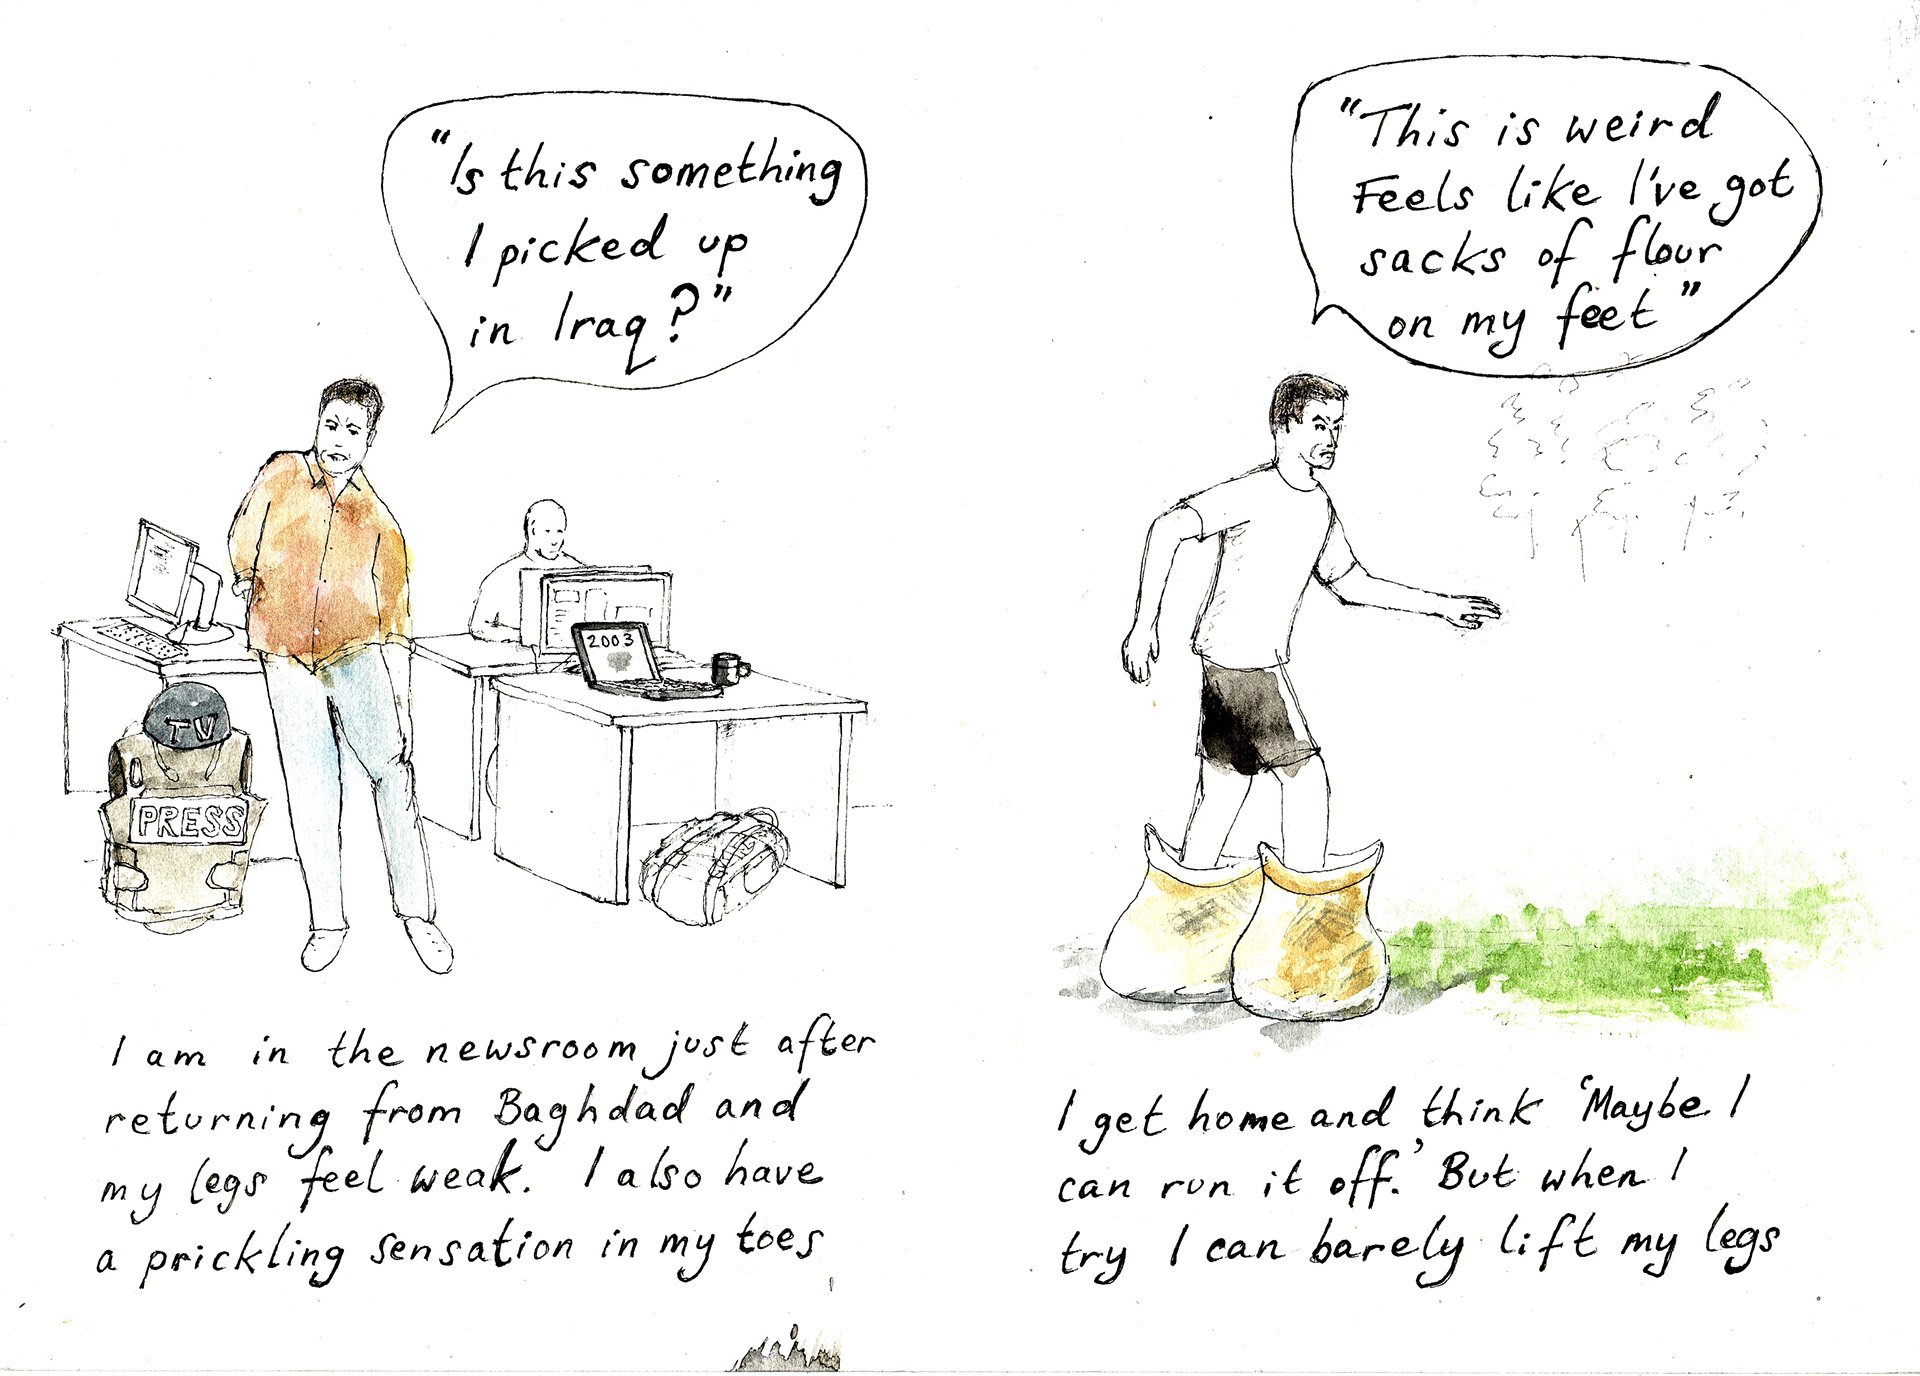 "Is this something
I picked up
in Iraq?"
2003
TV
PRESS
I am in the newsroom just after
returning from Baghdad and
my legs feel weak. I also have
a prickling sensation in my toes
"This is weird
Feels like I've got
sacks of flour
on my feet"
I get home and think 'Maybe I
can run it off.' But when I
try I can barely lift my legs